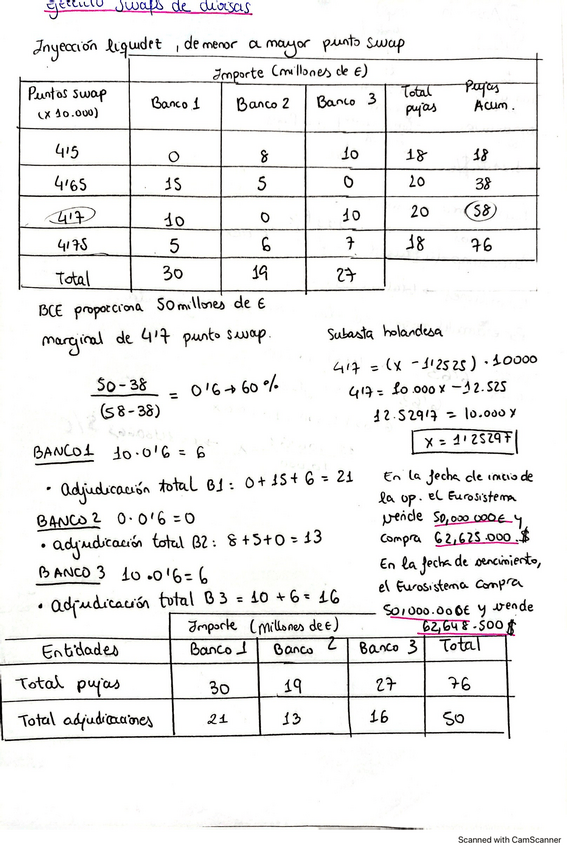 Ejercicio Swaps de divisas
Inyección liquidet, de menor a mayor punto swap
Importe (millones de €)
Puntos swap (x 10.000) Banco 1 Banco 2 Banco 3 Total pujas Pujas Acum.
4'5 0 8 10 18 18
4'65 15 5 0 20 38
4'7 10 0 10 20 58
4'75 5 6 7 18 76
Total 30 19 27
BCE proporciona 50 millones de €
marginal de 4'7 punto swap.
50-38 / (58-38) = 0'6 → 60%
Subasta holandesa
4'7 = (x - 1'2525) · 10000
4'7 = 10.000x - 12.525
12.529'7 = 10.000x
x = 1'25297
BANCO 1 10·0'6 = 6
• Adjudicación total B1: 0+15+6 = 21
BANCO 2 0·0'6=0
• adjudicación total B2: 8+5+0 = 13
BANCO 3 10·0'6=6
• Adjudicación total B3 = 10+6 = 16
En la fecha de inicio de
la op. el Eurosistema
vende 50,000.000€ y
compra 62,625.000.$
En la fecha de vencimiento,
el Eurosistema compra
50,000.000€ y vende
62,648.500$
Importe (Millones de €)
Entidades Banco 1 Banco 2 Banco 3 Total
Total pujas 30 19 27 76
Total adjudicaciones 21 13 16 50
Scanned with CamScanner